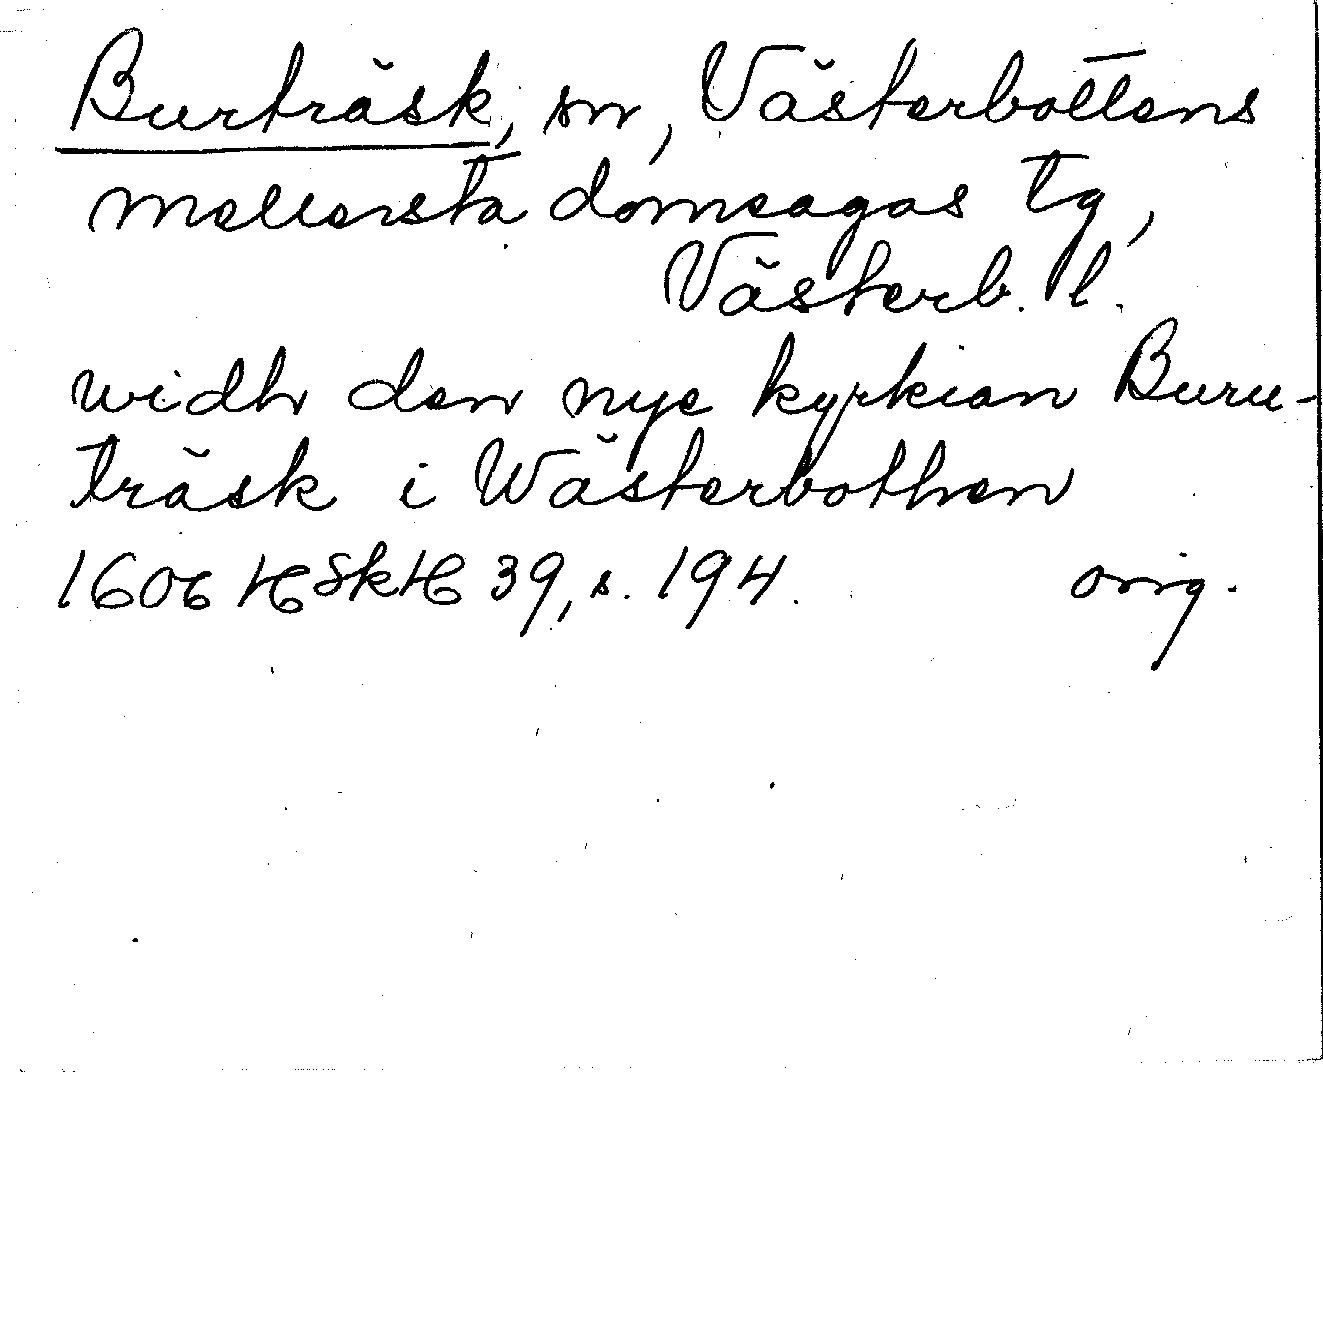 Burträsk, sn, Västerbottens
mellersta domsagas tg,
Västerb. l.
widh den nye kyrkian Buru-
träsk i Wästerbothen
1606 HSkH 39, s. 194. orig.